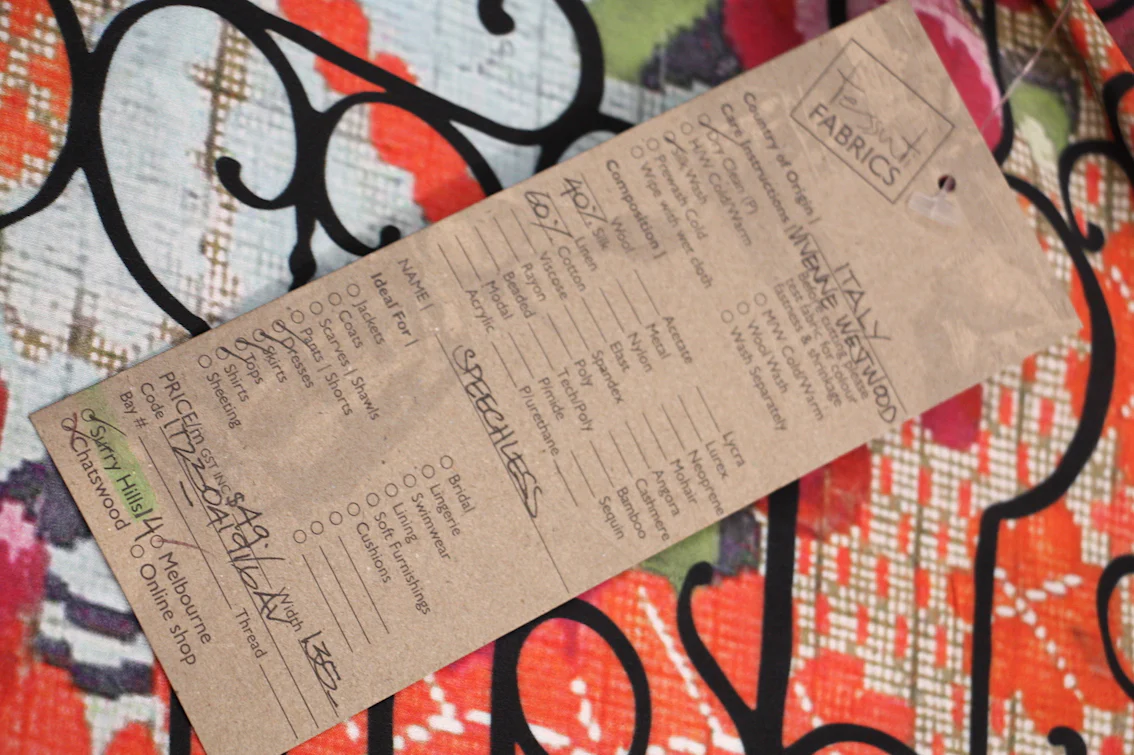 Tessuti
FABRICS
Country of Origin | ITALY
VIVIENNE WESTWOOD
Care Instructions |
Before cutting please
test fabric for colour
fastness & shrinkage
Dry Clean (P)
H/W Cold/Warm
Silk Wash
Prewash Cold
Wipe with wet cloth
M/W Cold/Warm
Wool Wash
Wash Separately
Composition |
Wool
40% Silk
Linen
60% Cotton
Viscose
Rayon
Beaded
Modal
Acrylic
Acetate
Metal
Nylon
Elast
Spandex
Poly
Tech/Poly
P/mide
P/urethane
Lycra
Lurex
Neoprene
Mohair
Angora
Cashmere
Bamboo
Sequin
NAME | SPEECHLESS
Ideal For |
Jackets
Coats
Scarves | Shawls
Pants | Shorts
Dresses
Skirts
Tops
Shirts
Sheeting
Bridal
Lingerie
Swimwear
Lining
Soft Furnishings
Cushions
PRICE/m GST INC $49/ Width 135
Code |
Bay # Thread
Surry Hills 14 Melbourne
Chatswood Online shop